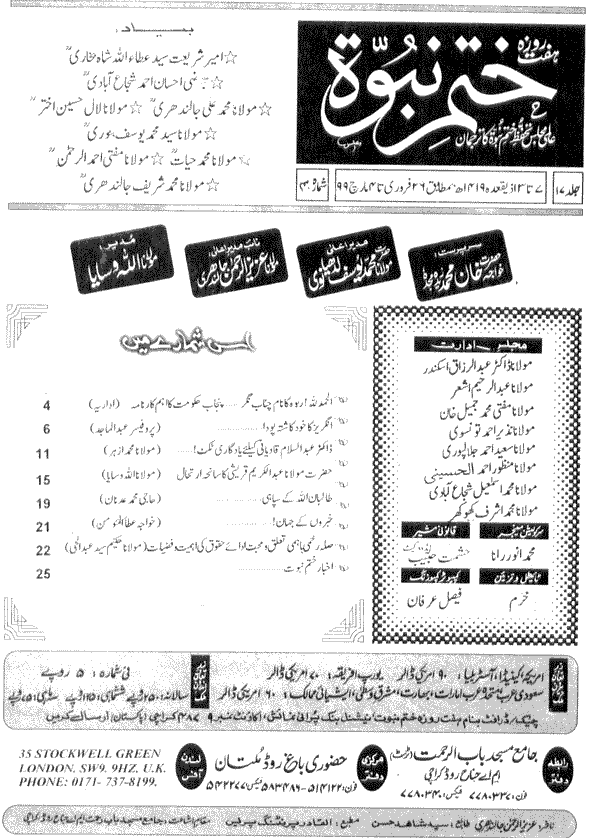 بیاد
☆امیر شریعت سید عطاء اللہ شاہ بخاریؒ
احسان احمد شجاع آبادیؒ
☆مولانا محمد علی جالندھریؒ ☆مولانا لال حسین اخترؒ
☆مولانا سید محمد یوسف بنوریؒ
☆مولانا محمد حیاتؒ ☆مولانا مفتی احمد الرحمٰنؒ
☆مولانا محمد شریف جالندھریؒ
ہفت روزہ
ختم نبوۃ
عالمی مجلس تحفظ ختم نبوۃ کا ترجمان
جلد ۱۷
۷ تا ۱۳ ذیقعدہ ۱۴۱۹ھ بمطابق ۲۶ فروری تا ۴ مارچ ۹۹
شمارہ ۴۰
سرپرست:
حضرت خواجہ خان محمد زید مجدہ
مدیر اعلیٰ:
حضرت مولانا محمد یوسف لدھیانوی
نائب مدیر اعلیٰ:
مولانا عزیز الرحمٰن جالندھری
مدیر:
مولانا اللہ وسایا
مجلس ادارت
مولانا ڈاکٹر عبدالرزاق اسکندر
مولانا عبدالرحیم اشعر
مولانا مفتی محمد جمیل خان
مولانا نذیر احمد تونسوی
مولانا سعید احمد جلالپوری
مولانا منظور احمد الحسینی
مولانا محمد اسمٰعیل شجاع آبادی
مولانا محمد اشرف کھوکھر
سرکولیشن منیجر
محمد انور رانا
قانونی مشیر
حشمت حبیب ایڈووکیٹ
ٹائٹل و تزئین
خرم
کمپیوٹر کمپوزنگ
فیصل عرفان
اس شمارے میں
الحمدللہ! ربوہ کا نام چناب نگر.... پنجاب حکومت کا اہم کارنامہ (اداریہ) 4
انگریز کا خود کاشتہ پودا! (پروفیسر عبدالماجد) 6
ڈاکٹر عبدالسلام قادیانی کیلئے یادگاری ٹکٹ! (مولانا محمد ازہر) 11
حضرت مولانا عبدالکریم قریشی کا سانحہ ارتحال (مولانا اللہ وسایا) 15
طالبان اللہ کے سپاہی (حاجی محمد عدنان) 19
خبروں کے جہان! (خواجہ عطاء المومن) 21
صلہ رحمی باہمی تعلق و محبت ادائے حقوق کی اہمیت و فضیلت (مولانا حکیم سید عبدالحئی) 22
اخبار ختم نبوت 25
زر تعاون بیرون ملک
امریکہ، کینیڈا، آسٹریلیا: ۹۰ امریکی ڈالر یورپ، افریقہ: ۷۰ امریکی ڈالر
سعودی عرب، متحدہ عرب امارات، بھارت، مشرق وسطیٰ، ایشیائی ممالک: ۶۰ امریکی ڈالر
زر تعاون اندرون ملک
فی شمارہ: ۵ روپے
سالانہ: ۲۵۰ روپے ششماہی: ۱۲۵ روپے سہ ماہی: ۷۵ روپے
چیک/ڈرافٹ بنام ہفت روزہ ختم نبوت، نیشنل بنک پرانی نمائش، اکاؤنٹ نمبر ۹-۴۸۷ کراچی (پاکستان) ارسال کریں
رابطہ دفتر
جامع مسجد باب الرحمت (ٹرسٹ)
ایم اے جناح روڈ کراچی
فون: ۷۷۸۰۳۳۷ فیکس: ۷۷۸۰۳۴۰
مرکزی دفتر
حضوری باغ روڈ ملتان
فون: ۵۱۴۱۲۲-۵۸۳۴۸۶ فیکس: ۵۴۲۲۷۷
لندن آفس
35 STOCKWELL GREEN
LONDON, SW9. 9HZ. U.K.
PHONE: 0171- 737-8199.
ناشر: عزیز الرحمٰن جالندھری طابع: سید شاہد حسن مطبع: القادر پرنٹنگ پریس مقام اشاعت: جامع مسجد باب رحمت ایم اے جناح روڈ کراچی